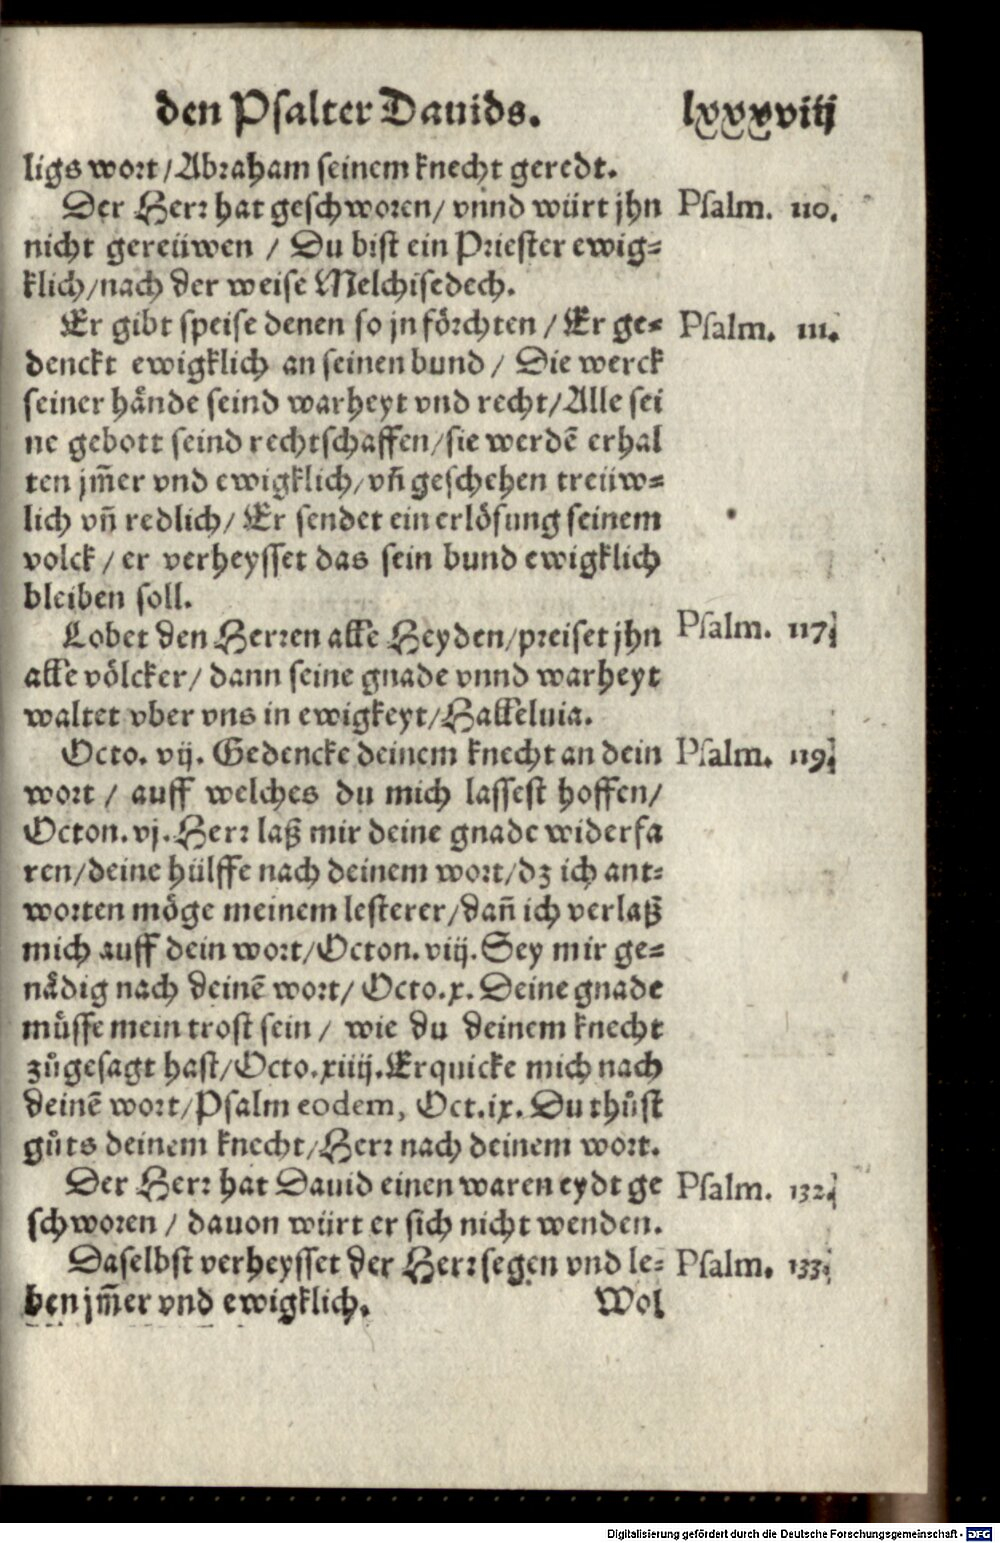 den Psalter Dauids. lxxxviij
ligs wort/Abraham seinem knecht geredt.
Der Herr hat geschworen/ vnnd würt jhn Psalm. 110.
nicht gereüwen / Du bist ein Priester ewig-
klich/nach der weise Melchisedech.
Er gibt speise denen so jn förchten / Er ge- Psalm. 111.
denckt ewigklich an seinen bund / Die werck
seiner hände seind warheyt vnd recht/Alle sei
ne gebott seind rechtschaffen/sie werdē erhal
ten jm̄er vnd ewigklich/vn̄ geschehen treüw-
lich vn̄ redlich/ Er sendet ein erlösung seinem
volck / er verheysset das sein bund ewigklich
bleiben soll.
Lobet den Herren alle Heyden/preiset jhn Psalm. 117.
alle völcker/ dann seine gnade vnnd warheyt
waltet vber vns in ewigkeyt/Halleluia.
Octo. vij. Gedencke deinem knecht an dein Psalm. 119.
wort / auff welches du mich lassest hoffen/
Octon.vj.Herr laß mir deine gnade widerfa
ren/deine hülffe nach deinem wort/dz ich ant-
worten möge meinem lesterer/dan̄ ich verlaß
mich auff dein wort/Octon.viij.Sey mir ge-
nädig nach deinē wort/ Octo.x.Deine gnade
müsse mein trost sein / wie du deinem knecht
zůgesagt hast/Octo.xiiij.Erquicke mich nach
deinē wort/Psalm eodem, Oct.ix.Du thůst
gůts deinem knecht/Herr nach deinem wort.
Der Herr hat Dauid einen waren eydt ge Psalm. 132.
schworen / dauon würt er sich nicht wenden.
Daselbst verheysset der Herr segen vnd le- Psalm. 133.
ben jm̄er vnd ewigklich. Wol
Digitalisierung gefördert durch die Deutsche Forschungsgemeinschaft - DFG